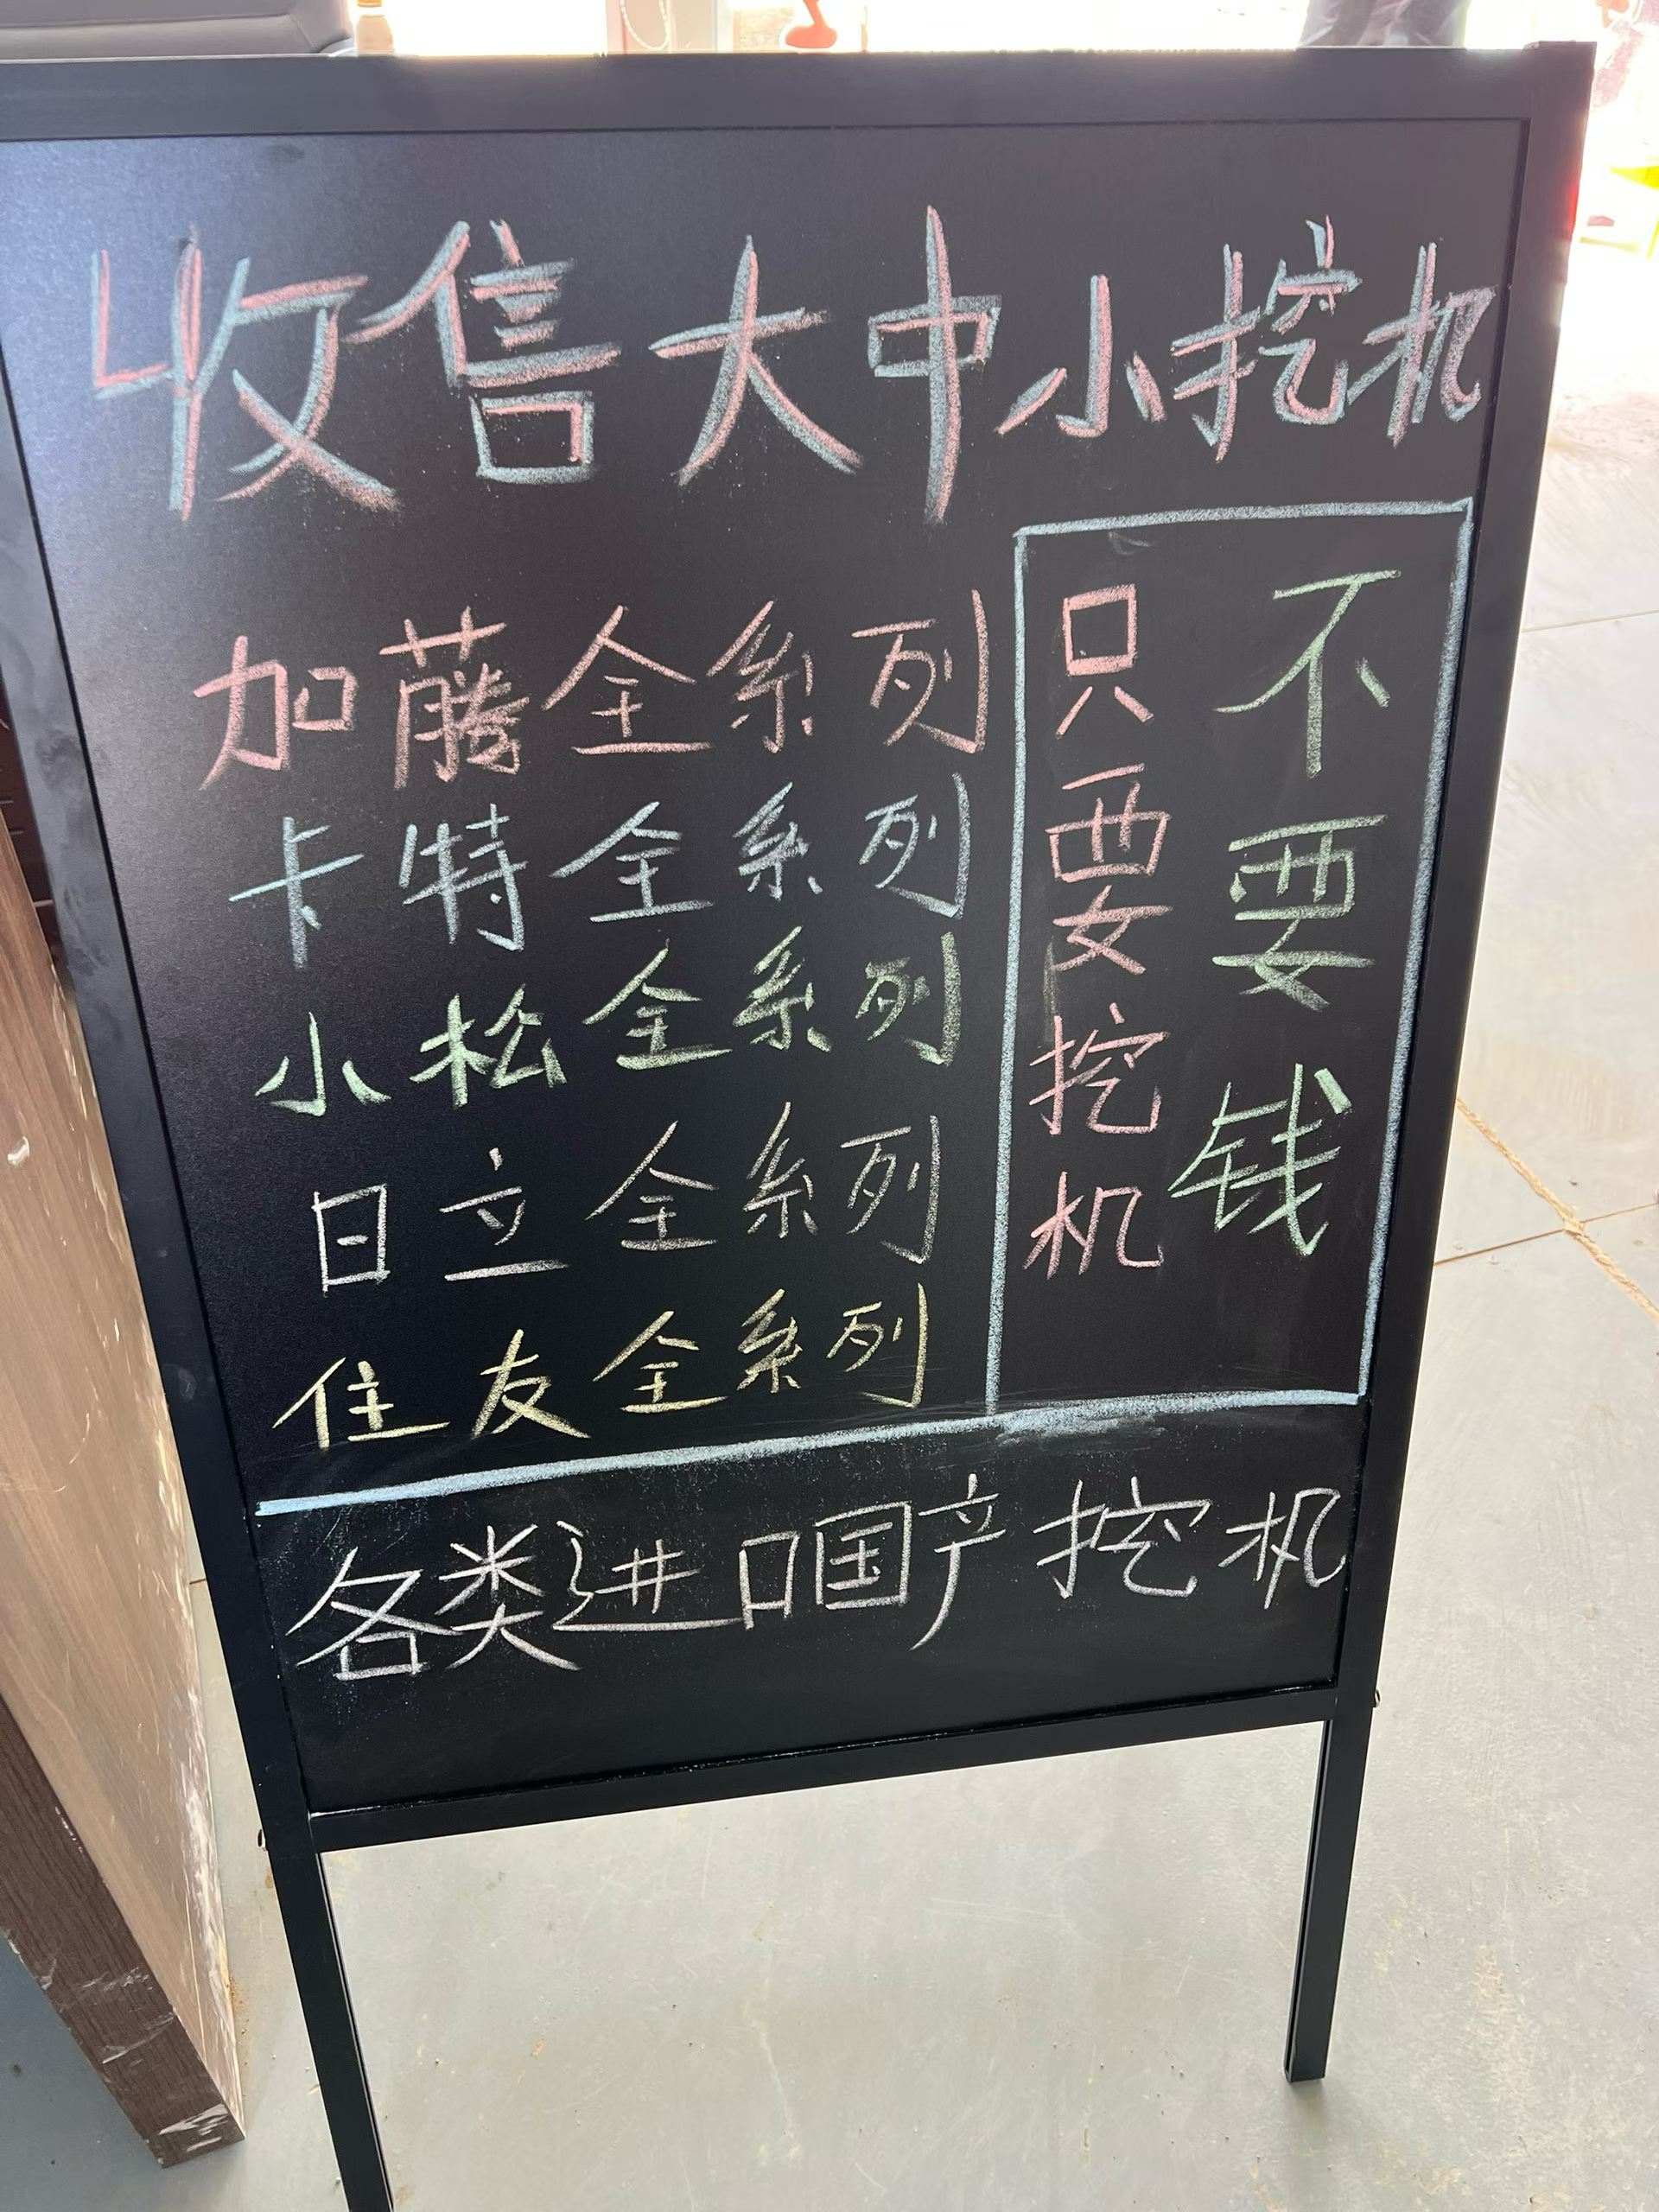 收售大中小挖机
加藤全系列
卡特全系列
小松全系列
日立全系列
住友全系列
不要钱
只要挖机
各类进口国产挖机